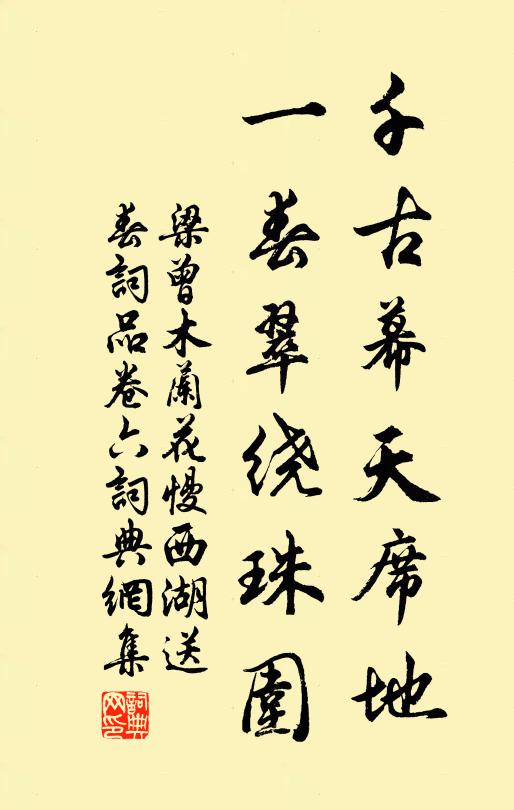 千古幕天席地
一春翠绕珠圍
梁曾木蘭花慢西湖送
春詞品卷六詞典網集
詞典网印